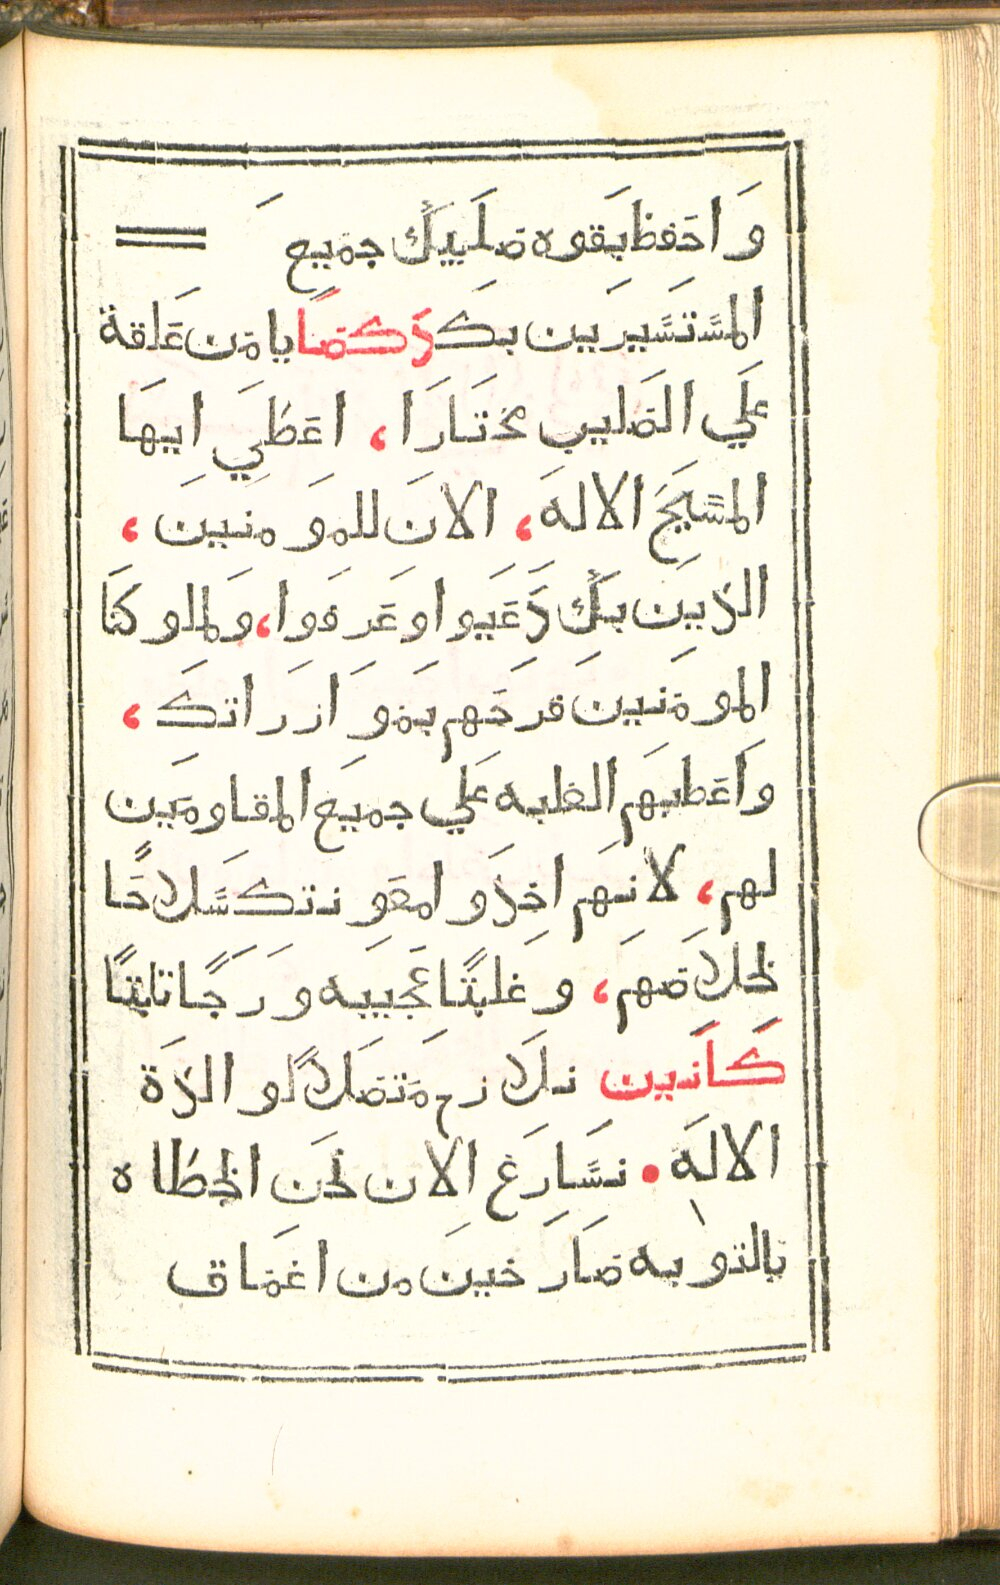 وَاحَفظ بَقوه صَلَيبَكَ جمَيعَ
المسَتَسَيرين بَكَ ذَكصَا يا مَن عَلقة
عَلَي الصَليب مختَارَا ، اعَطَي ايهَا
المسَيحَ الالهَ ، الانَ للموَمنيَن ،
الذيَن بَكَ دَعَيوا وعَرفَوا ، وَلملوكنَا
المومَنيَن فرَحَهم بمَوَازرَاتكَ ،
وَاعَطيهَم الغلبه عَلي جميَع المقاومَين
لهم ، لانهَم اخذَوا معَونتكَ سَلاحًا
لخلاصَهَم ، وغلبتًا عجَيبَه ورَجًا تابتًا
كَانَين نلاذم مَتصَلاً لوالدَة
الالَه • نسَارَع الان نحَن الخطاه
بالتوبه صَارَخيَن من اعمَاق